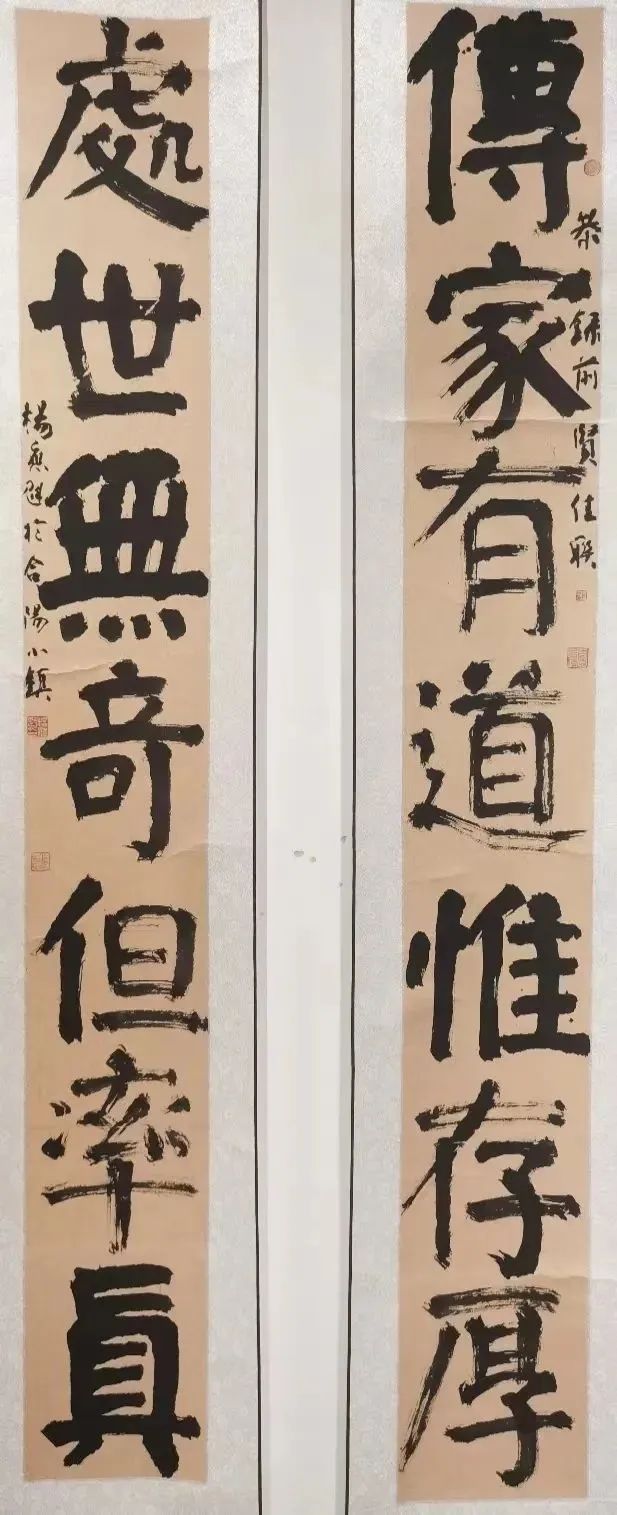 傳家有道惟存厚
恭錄前賢佳联
處世無奇但率真
楊應魁於合陽小鎮